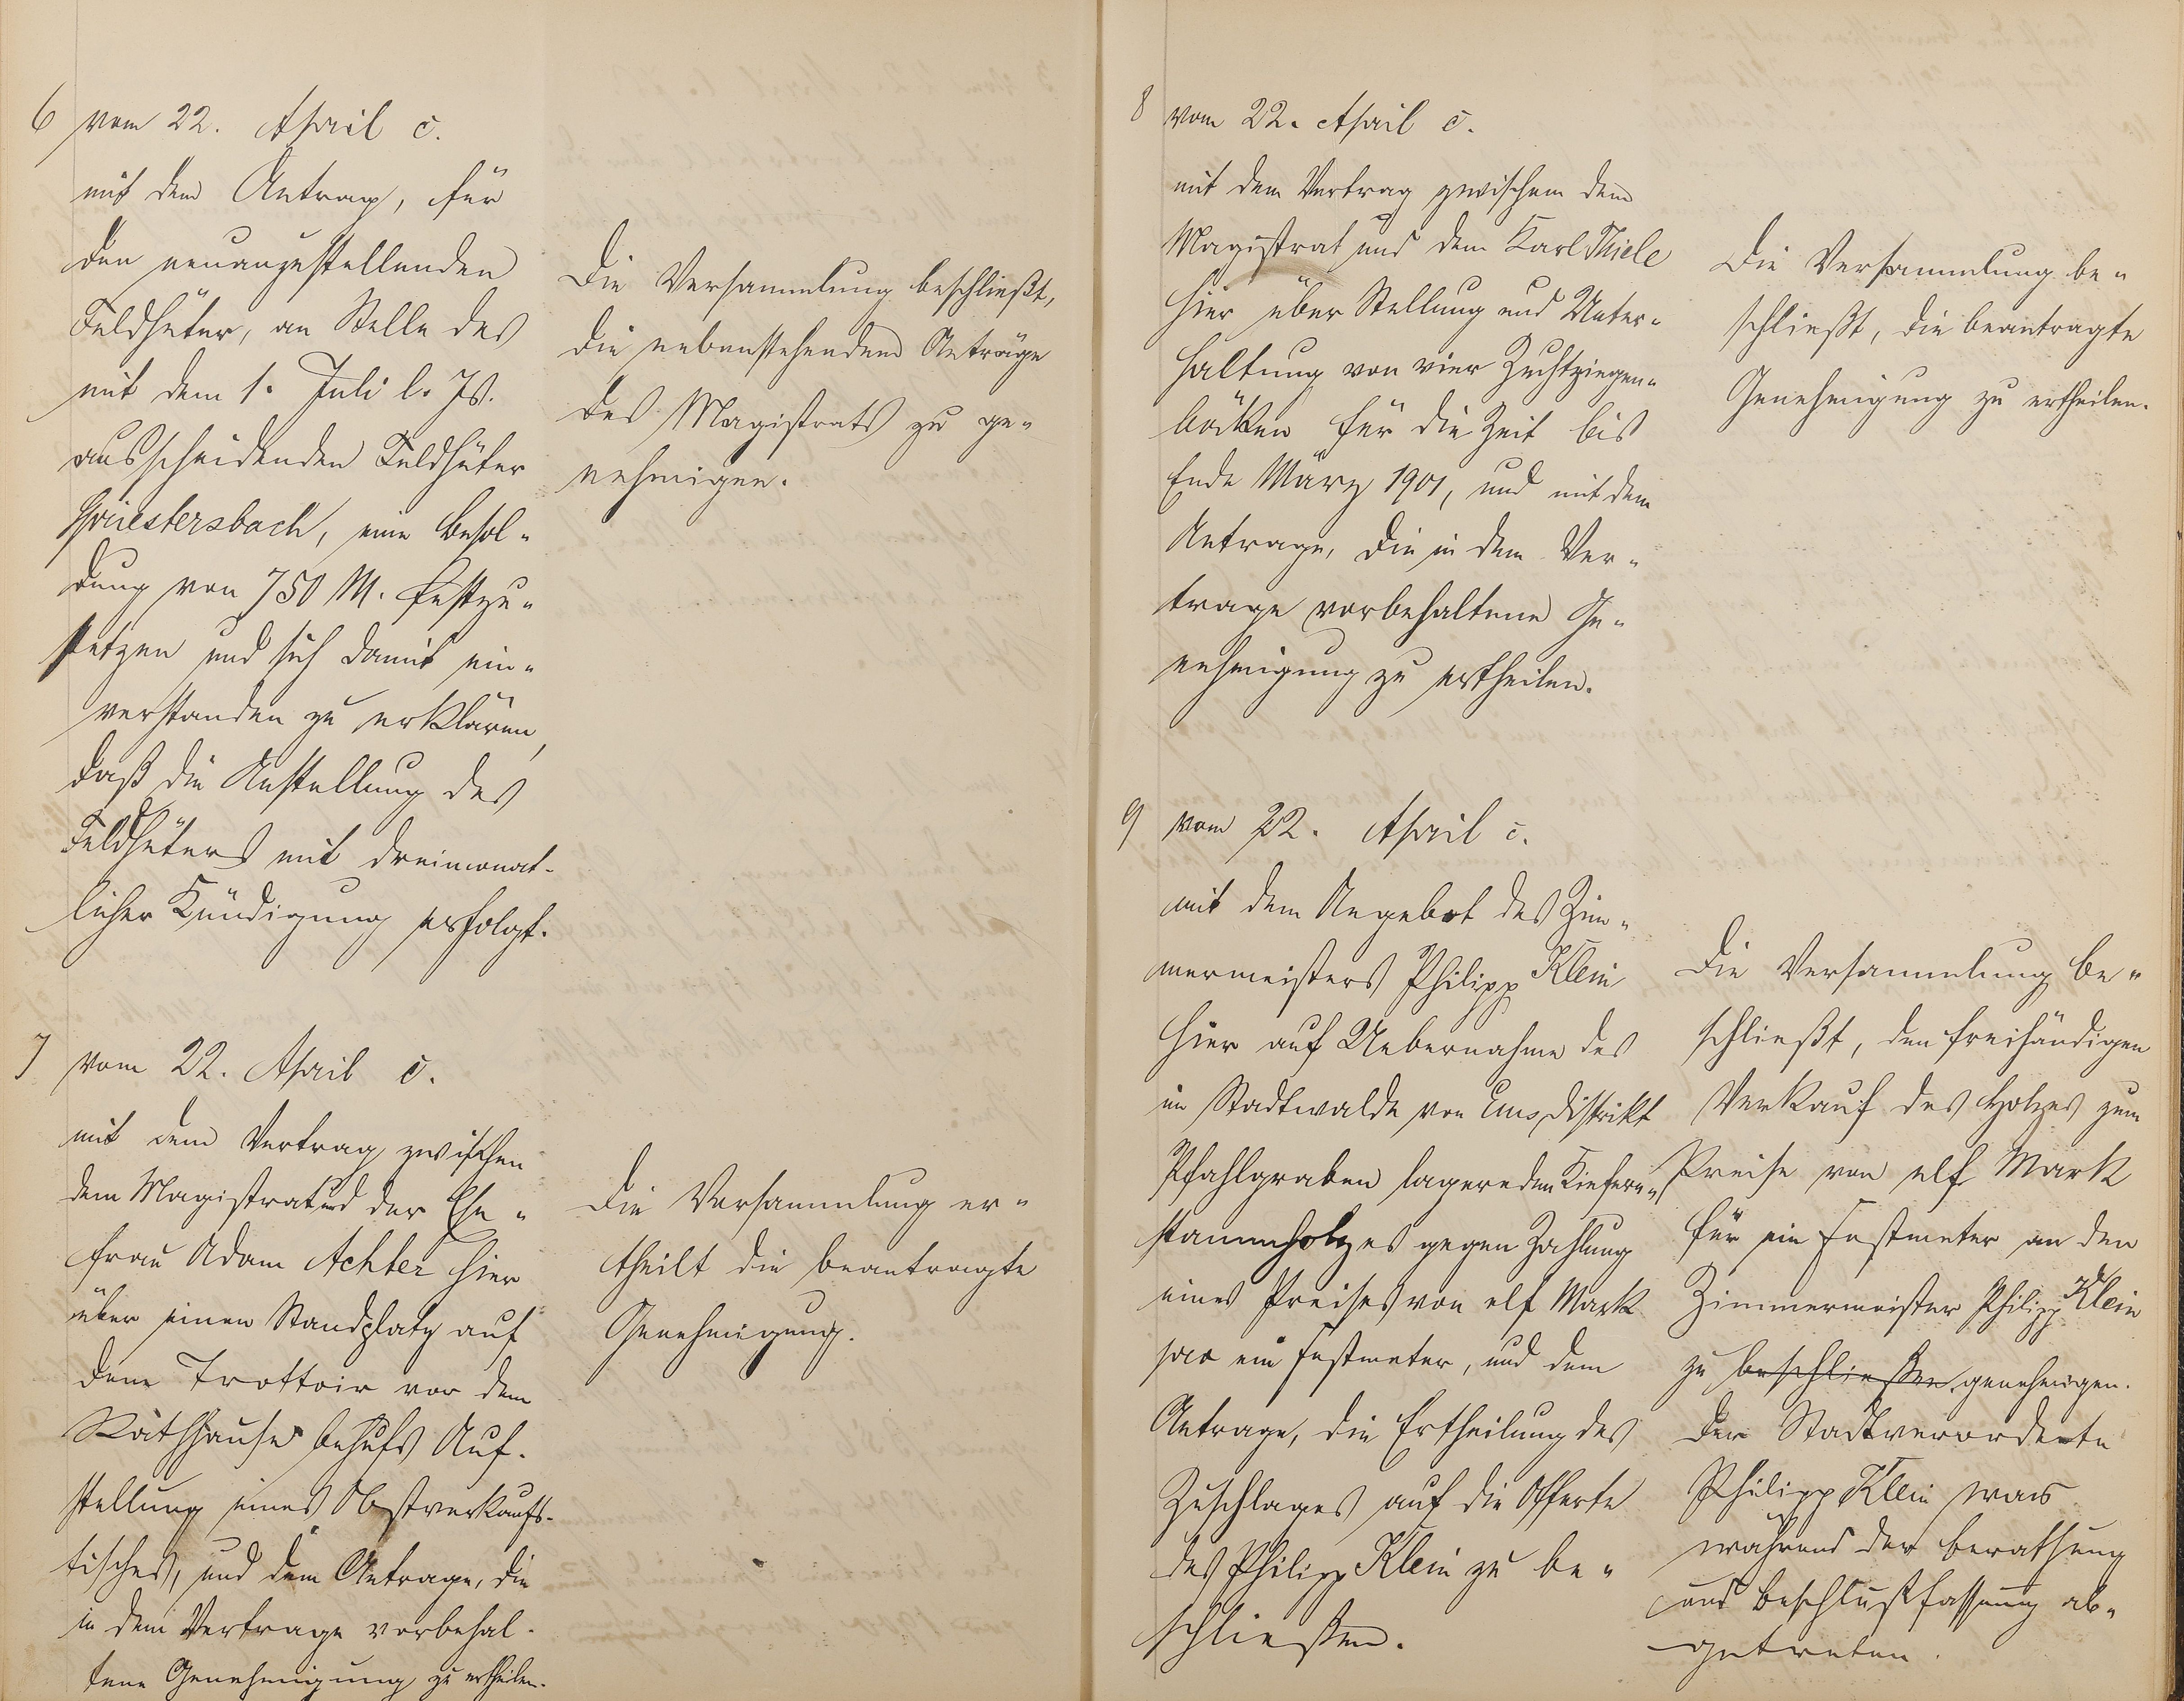 6 vom 22. April c.
mit dem Antrag, für
den neuanzustellenden
Feldhüter, an Stelle des
mit dem 1. Juli l. Js.
ausscheidenden Feldhüter
Griestersbach, eine Besol-
dung von 750 M. festzu-
setzen und sich damit ein-
verstanden zu erklären,
daß die Anstellung des
Feldhüters mit dreimonat-
licher Kündigung erfolgt.
Die Versammlung beschließt,
die nebenstehenden Anträge
des Magistrats zu ge-
nehmigen.
7 vom 22. April c.
mit dem Vertrag zwischen
dem Magistrat und der Ehe-
frau Adam Achter hier
über einen Standplatz auf
dem Trottoir vor dem
Rathhause behufs Auf-
stellung eines Obstverkaufs-
tisches, und dem Antrage, die
in dem Vertrage vorbehal-
tene Genehmigung zu ertheilen.
Die Versammlung er-
theilt die beantragte
Genehmigung.
8 vom 22. April c.
mit dem Vertrag zwischen dem
Magistrat und dem Karl Thiele
hier über Stellung und Unter-
haltung von vier Zuchtziegen-
böcken für die Zeit bis
Ende März 1901, und mit dem
Antrage, die in dem Ver-
trage vorbehaltene Ge-
nehmigung zu ertheilen.
Die Versammlung be-
schließt, die beantragte
Genehmigung zu ertheilen.
9 vom 22. April c.
mit dem Angebot des Zim-
mermeisters Philipp Klein
hier auf Uebernahme des
im Stadtwalde von Ems, Distrikt
Pfahlgraben lagernden Kiefern-
stammholzes gegen Zahlung
eines Preises von elf Mark
pro ein Festmeter, und dem
Antrage, die Ertheilung des
Zuschlages auf die Offerte
des Philipp Klein zu be-
schließen.
Die Versammlung be-
schließt, den freihändigen
Verkauf des Holzes zum
Preise von elf Mark
für ein Festmeter an den
Zimmermeister Philipp Klein
zu beschließen genehmigen.
Der Stadtverordnete
Philipp Klein war
während der Berathung
und Beschlußfassung ab-
getreten.